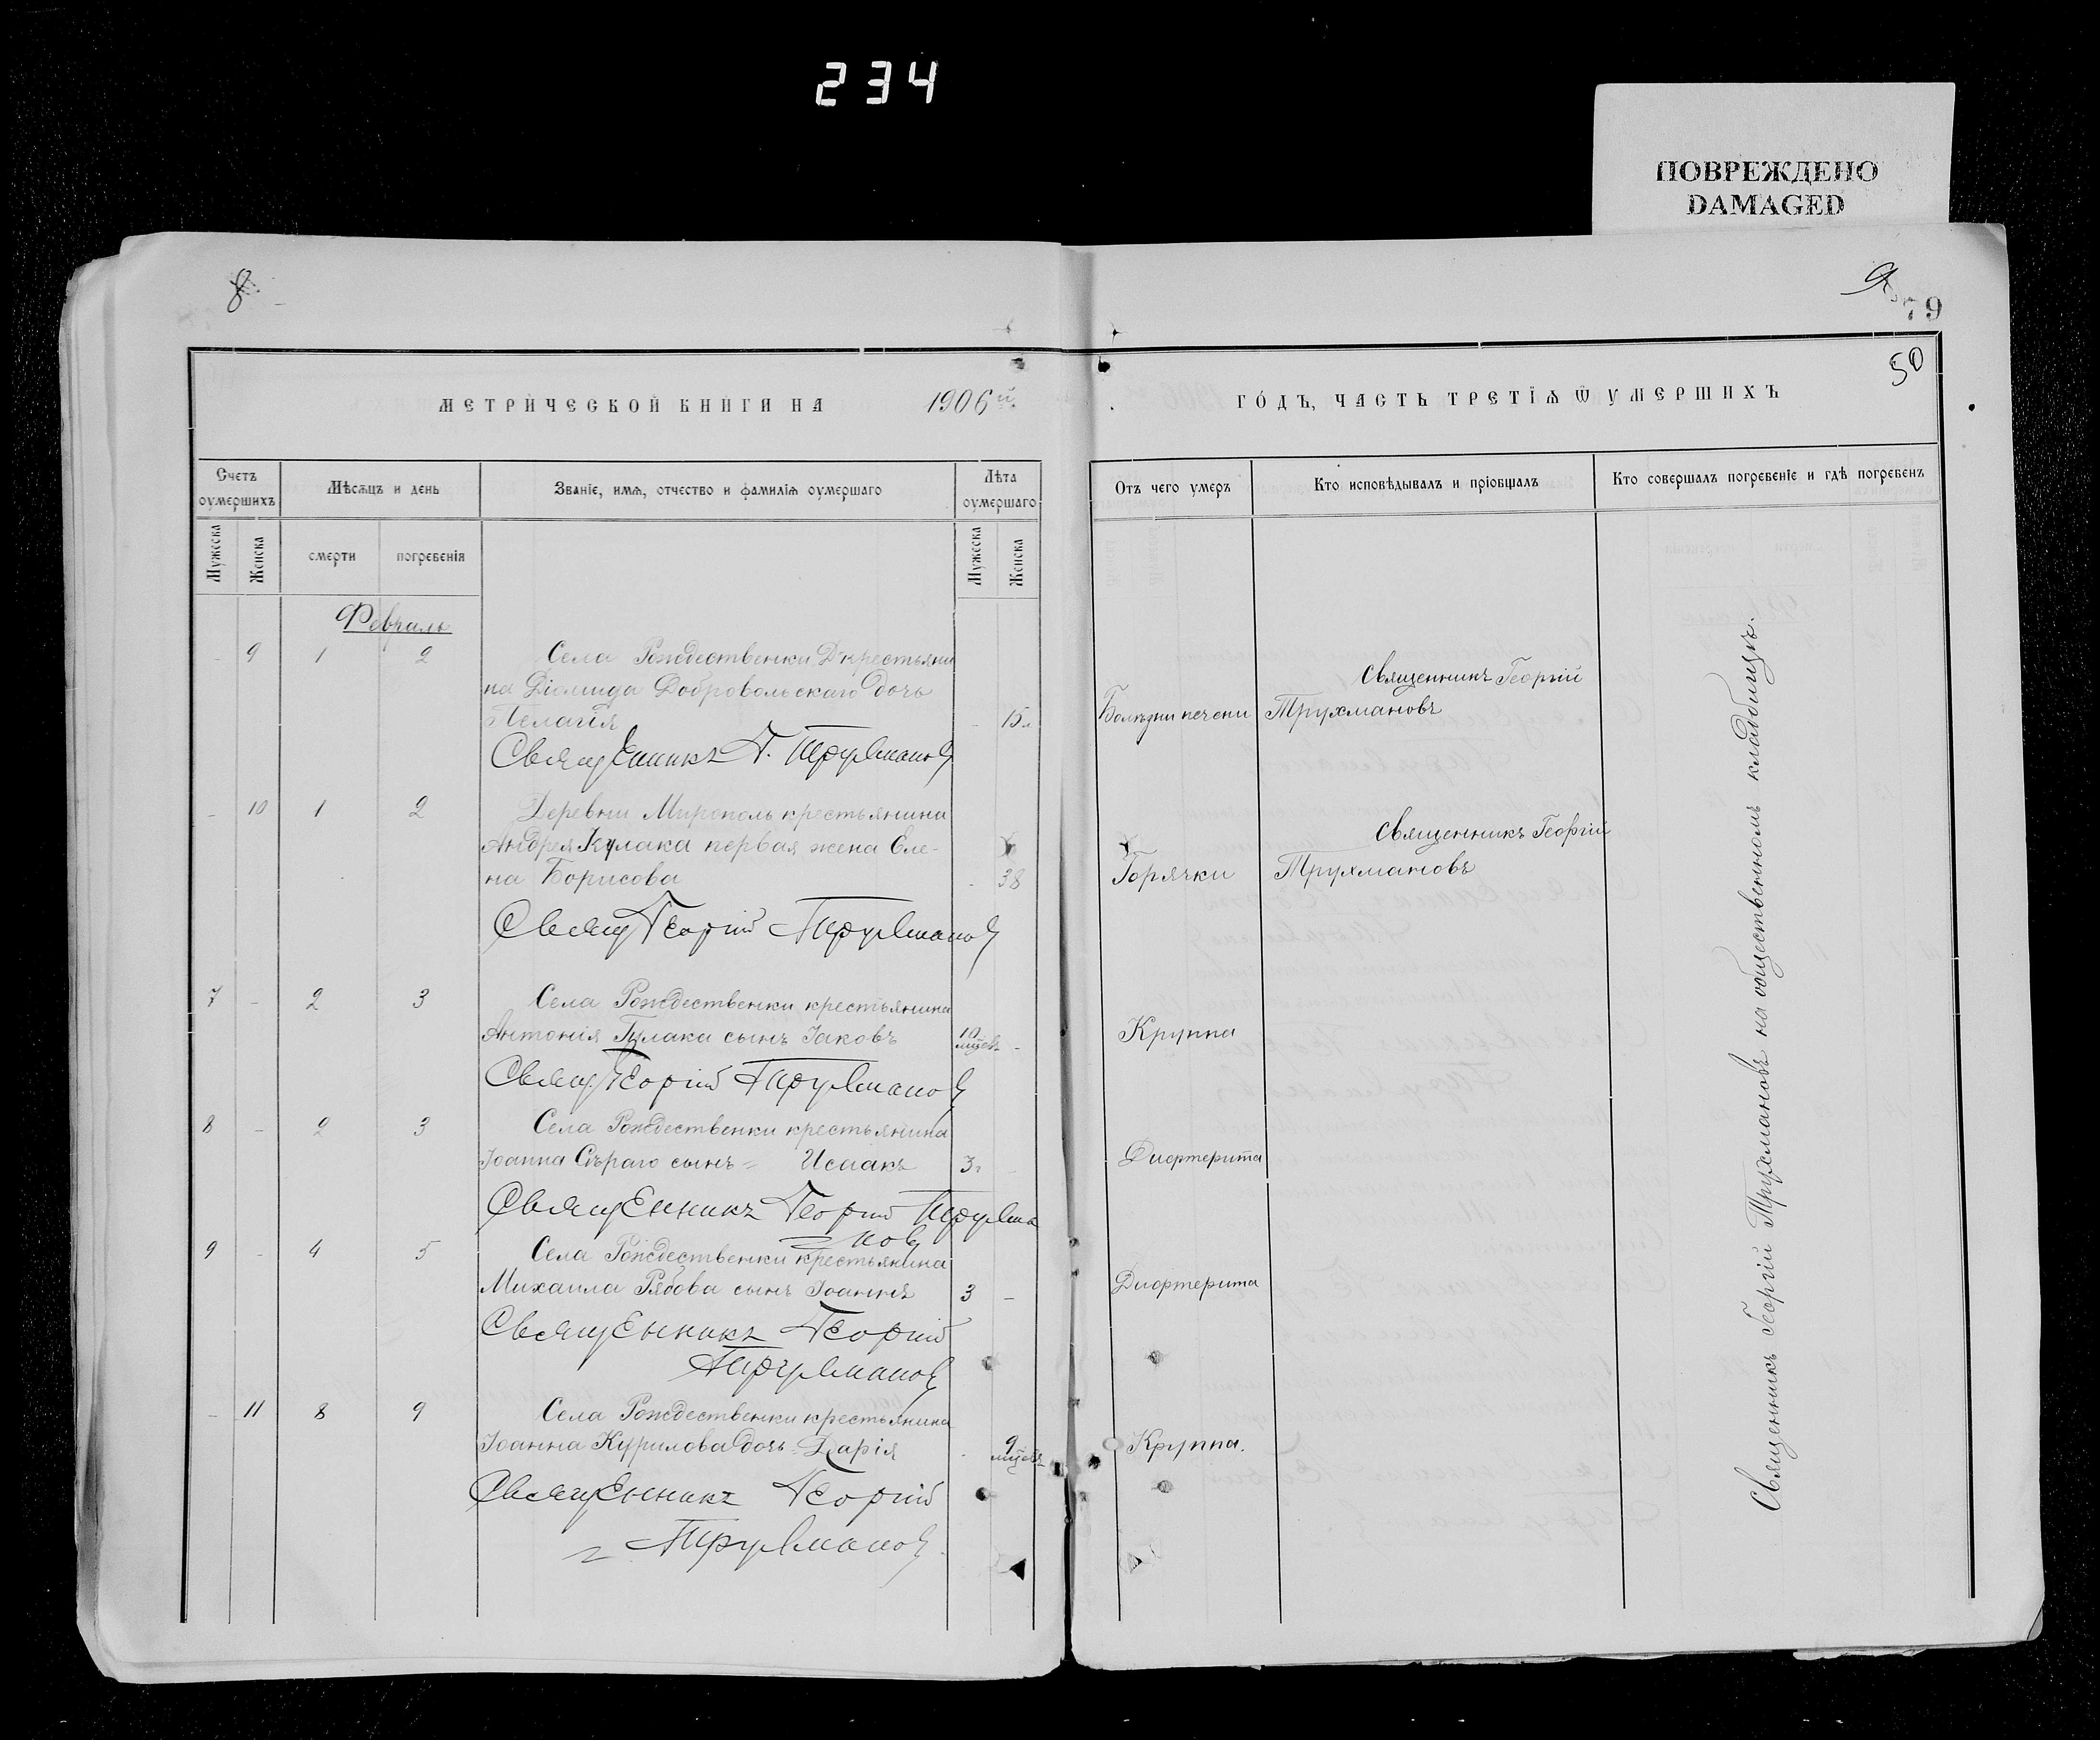 234
ПОВРЕЖДЕНО
DAMAGED
8.
9
79
50
МЕТРИЧЕСКОЙ КНИГИ НА 1906й
ГОДЪ, ЧАСТЬ ТРЕТІѦ Ѿ УМЕРШИХЪ
Счетъ оумершихъ
Мѣсѧцъ и день
Званіе, имѧ, отчество и фамиліѧ оумершаго
Лѣта оумершаго
Отъ чего умеръ
Кто исповѣдывалъ и пріобщалъ
Кто совершалъ погребеніе и гдѣ погребенъ
Мужеска
Женска
смерти
погребеніѧ
Мужеска
Женска
Февраль
- 9 1 2 Села Рождественки крестьяни
на Діомида Добровольскаго дочь
Пелагія - 15л
Болѣзни печени
Священникъ Георгій
Трухмановъ
Священникъ Г. Трухмановъ
- 10 1 2 Деревни Мирополь крестьянина
Андрея Кулака первая жена Еле-
на Борисова - 38
Горячки
Священникъ Георгій
Трухмановъ
Свящ Георгій Трухмановъ
7 - 2 3 Села Рождественки крестьянина
Антонія Гулака сынъ Іаковъ 10 мцевъ -
Круппа
Свящ. Георгій Трухмановъ
8 - 2 3 Села Рождественки крестьянина
Іоанна Сѣраго сынъ = Исаакъ 3г -
Дифтерита
Священникъ Георгій Трухма
новъ
9 - 4 5 Села Рождественки крестьянина
Михаила Рябова сынъ Іоаннъ 3 -
Дифтерита
Священникъ Георгій
Трухмановъ
- 11 8 9 Села Рождественки крестьянина
Іоанна Курилова дочь Дарія - 9 мцевъ
Круппа.
Священникъ Георгій
Трухмановъ
Священникъ Георгій Трухмановъ на общественномъ кладбищѣ.